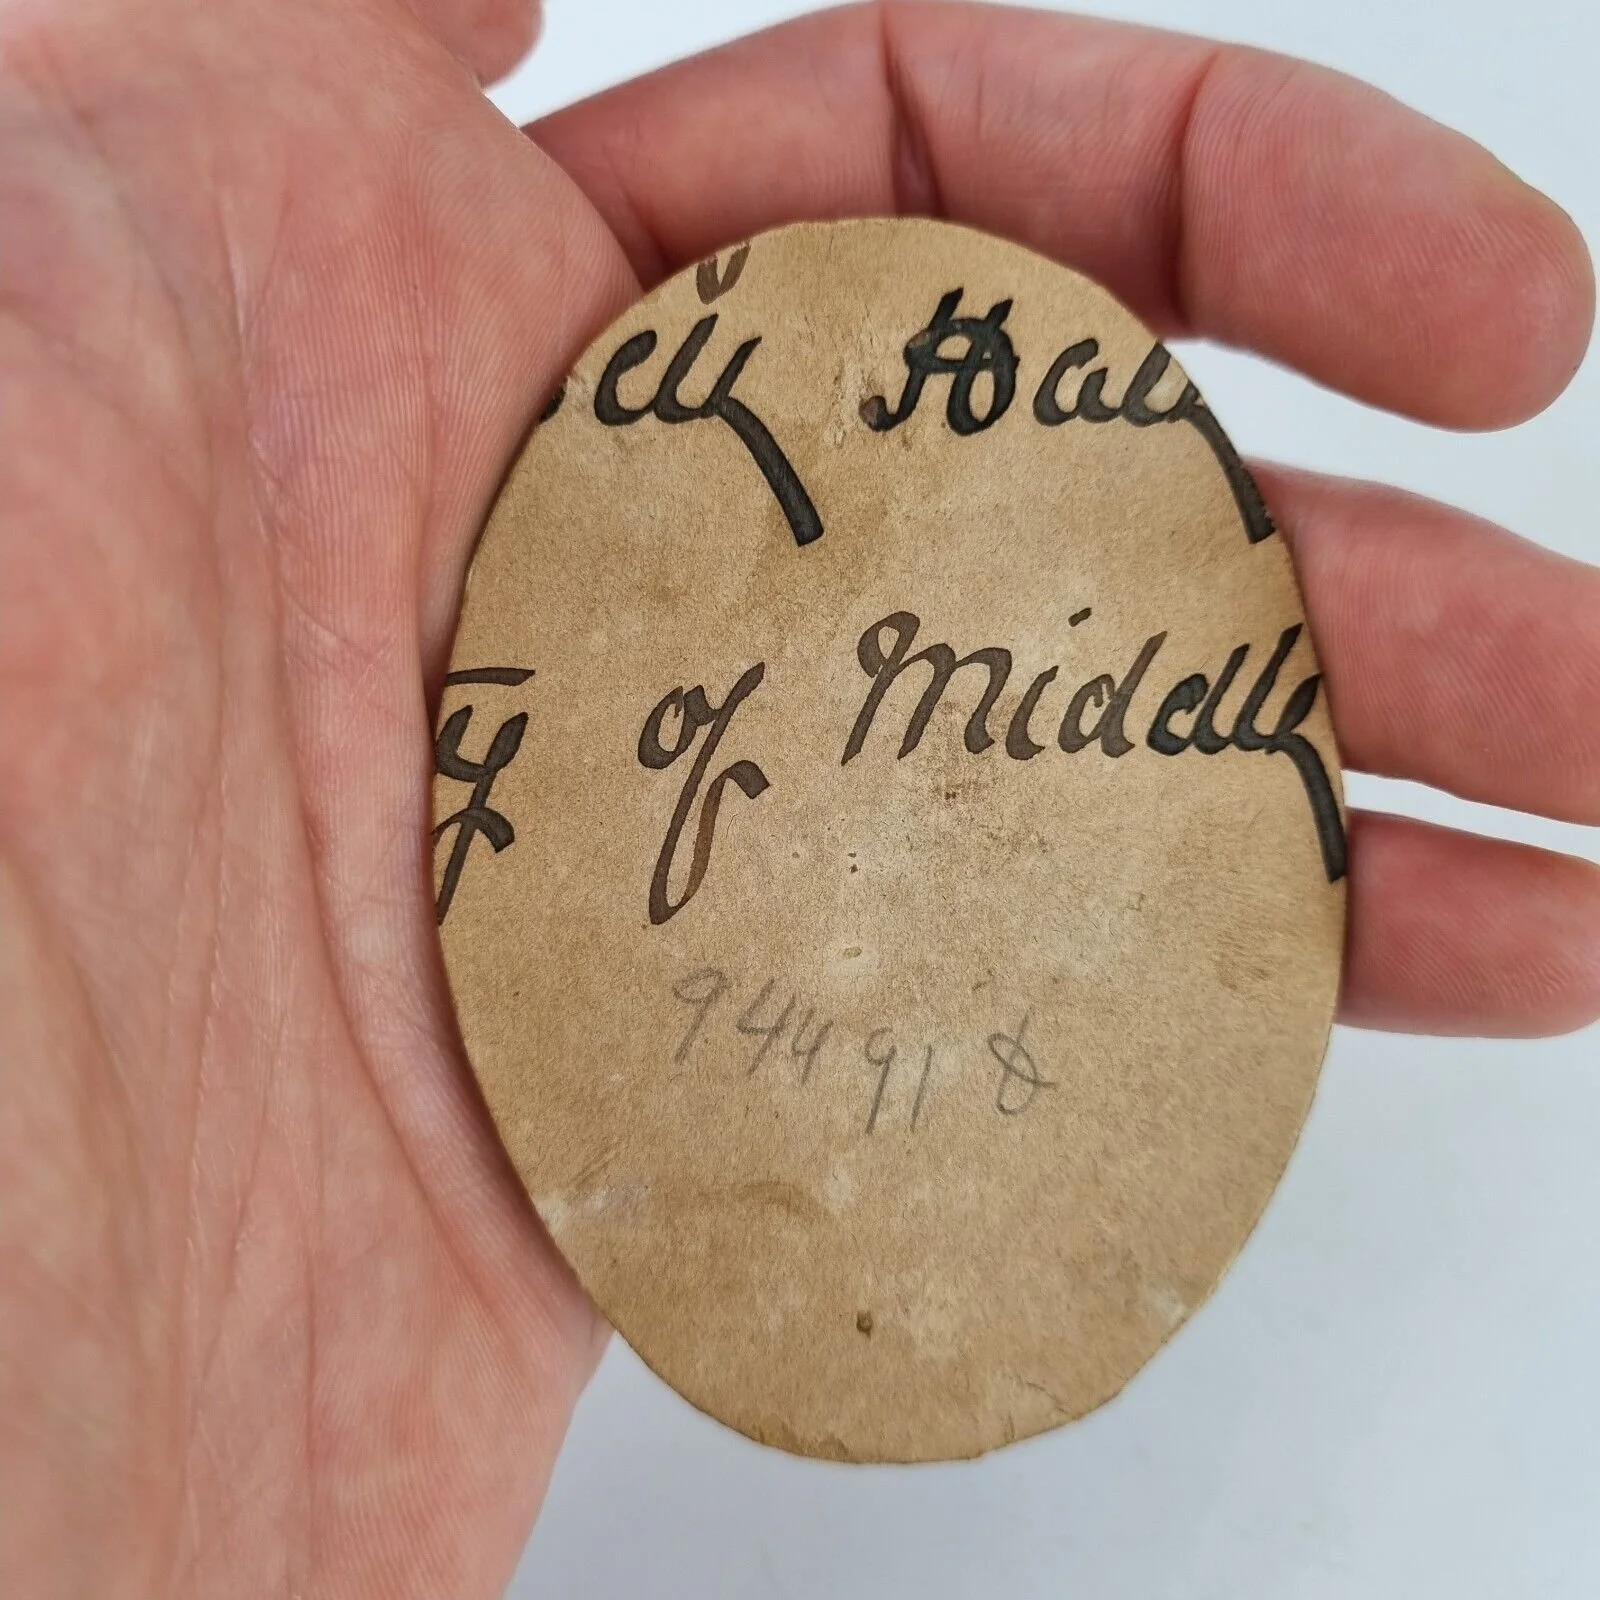 ell Hall
ty of Middle
944918